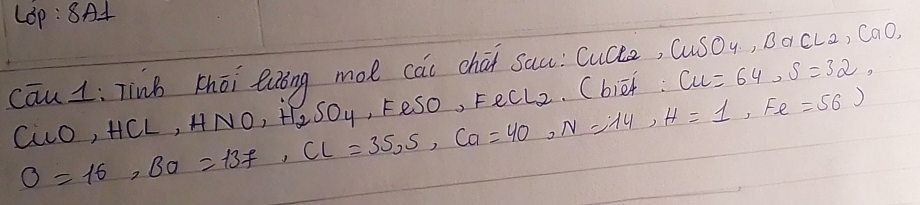 Lớp : 8A1
Câu 1: Tính khối lượng mol các chất sau: CuCl2, CuSO4, BaCL2, CaO,
CuO, HCL, HNO, H2SO4, FeSO, FeCL2. (biết : Cu = 64, S = 32,
O = 16, Ba = 137, CL = 35,5, Ca = 40, N = 14, H = 1, Fe = 56)